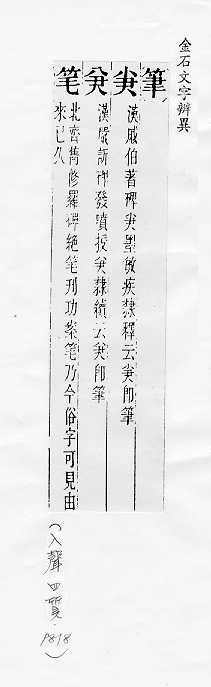 金石文字辨異
筆
漢戚伯著碑墨敏疾隸釋云即筆
漢嚴訢碑發憤授隸續云即筆
笔
北齊雋修羅碑絕笔刊功案笔乃今俗字可見由
來已久
(入聲四質. P818)